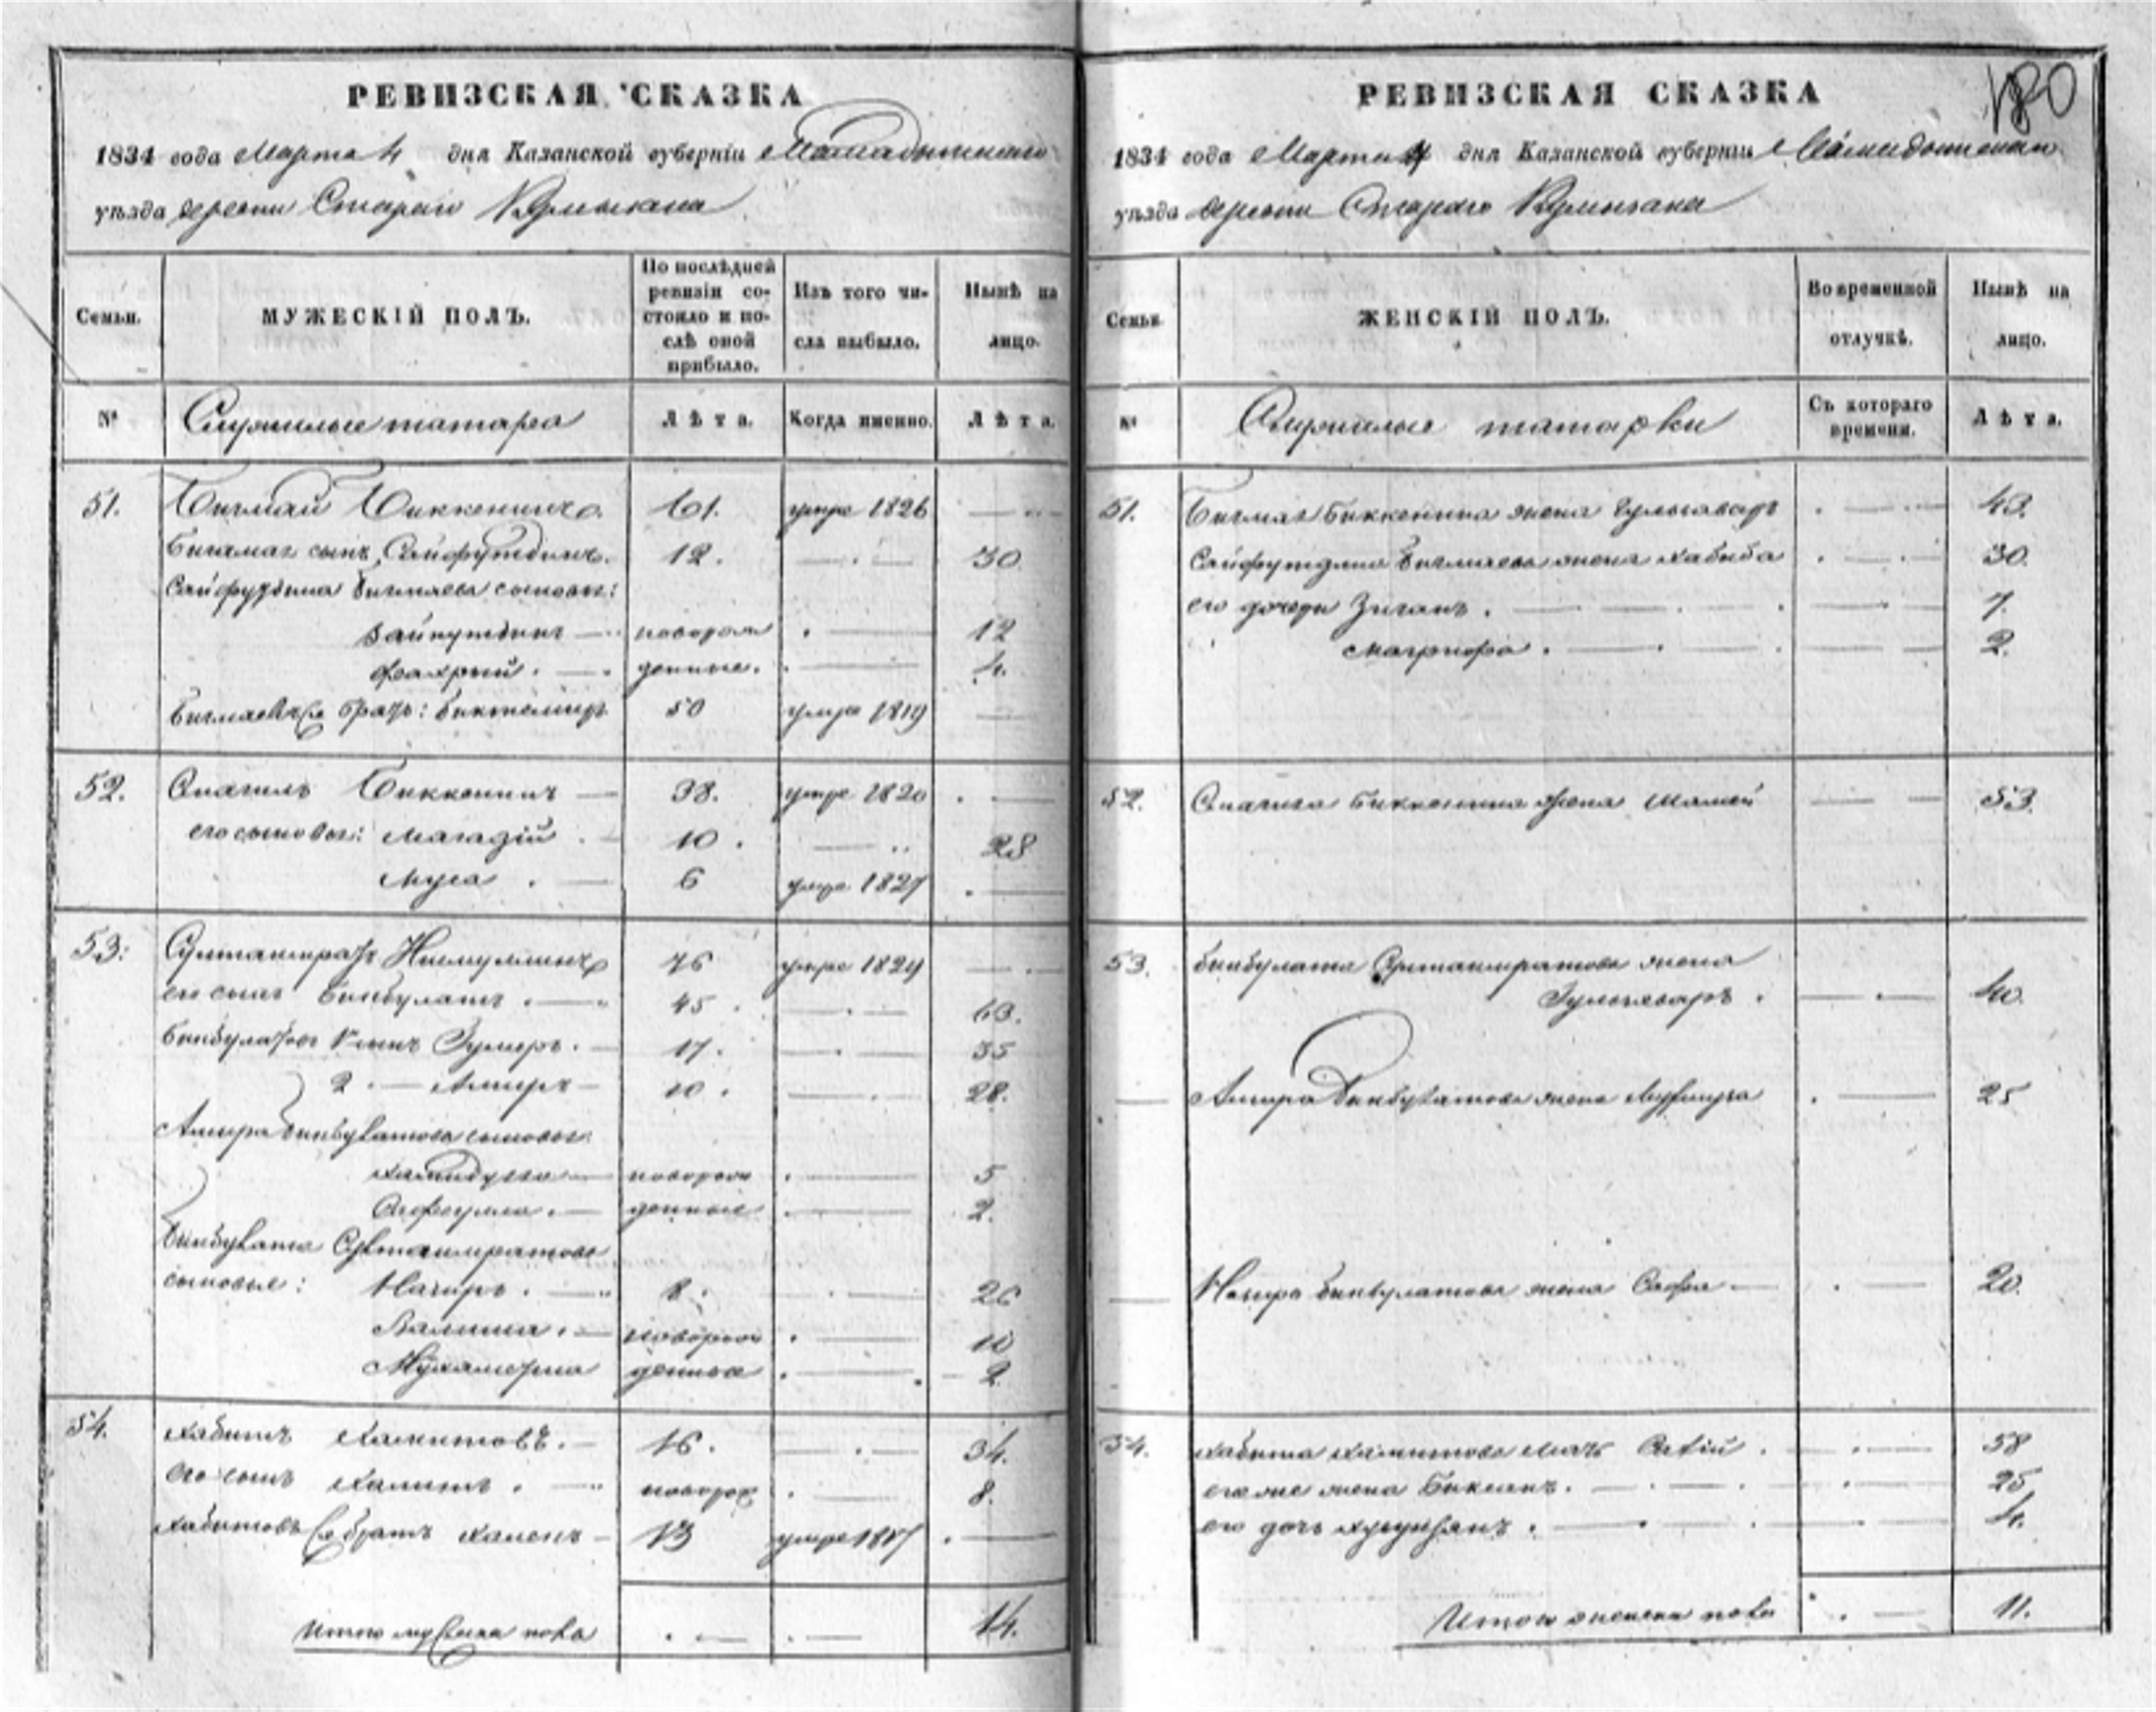 РЕВИЗСКАЯ СКАЗКА
1834 года Марта 4 дня Казанской губерніи Мамадышскаго
уѣзда деревни Старай Кумызана
Семьи.
МУЖЕСКІЙ ПОЛЪ.
По послѣдней ревизіи состояло и послѣ оной прибыло.
Изъ того числа выбыло.
Нынѣ на лицо.
№
Служилые татара
Лѣта.
Когда именно.
Лѣта.
51. Бигмай Биккенинъ 61. умре 1826
Бигмая сынъ Сайфутдинъ. 12. 30
Сайфутдина Бигмаева сыновья:
Зайнутдинъ новорож 12
Фахрый. денные. 4.
Бигмаевъ братъ: Биктемиръ 50 умре 1819
52. Смагилъ Биккенинъ 38. умре 1820
его сыновья: Магадій 10. 28
Муса 6 умре 1827
53. Султанмратъ 76 умре 1829
его сынъ Бикбулатъ 45 63.
Бикбулатовъ 1 сынъ Гумеръ. 17. 35
2. Амиръ 10. 28.
Амира Бикбулатова сыновья
новорож 5
денные 2.
Бикбулата Султанмратова
сыновья: Нагиръ. 8. 26
Валиша. новорож 10
денные 2.
54. Хабитъ Хамитовъ. 16. 34.
Его сынъ Халитъ. новорож 8.
Хабитовъ братъ 13 умре 1817
Итого мужеска пола 14.
180
РЕВИЗСКАЯ СКАЗКА
1834 года Марта 4 дня Казанской губерніи Мамадышскаго
уѣзда деревни Стараго Кумызана
Семьи.
ЖЕНСКІЙ ПОЛЪ.
Во временной отлучкѣ.
Нынѣ на лицо.
№
Служилые татарки
Съ котораго времени.
Лѣта.
51. Бигмая Биккенина жена Гульзаваръ 43.
Сайфутдина Бигмаева жена Хабиба 30.
его дочери 7.
Магрифа. 2.
52. Смагила Биккенина жена 53.
53. Бикбулата Султанмратова жена
Гульзаваръ. 40.
Амира Бикбулатова жена 25
Нагира Бикбулатова жена Сафа 20.
54. Хабита Хамитова мать 58
его же жена 25
его дочь 4.
Итого женска пола 11.